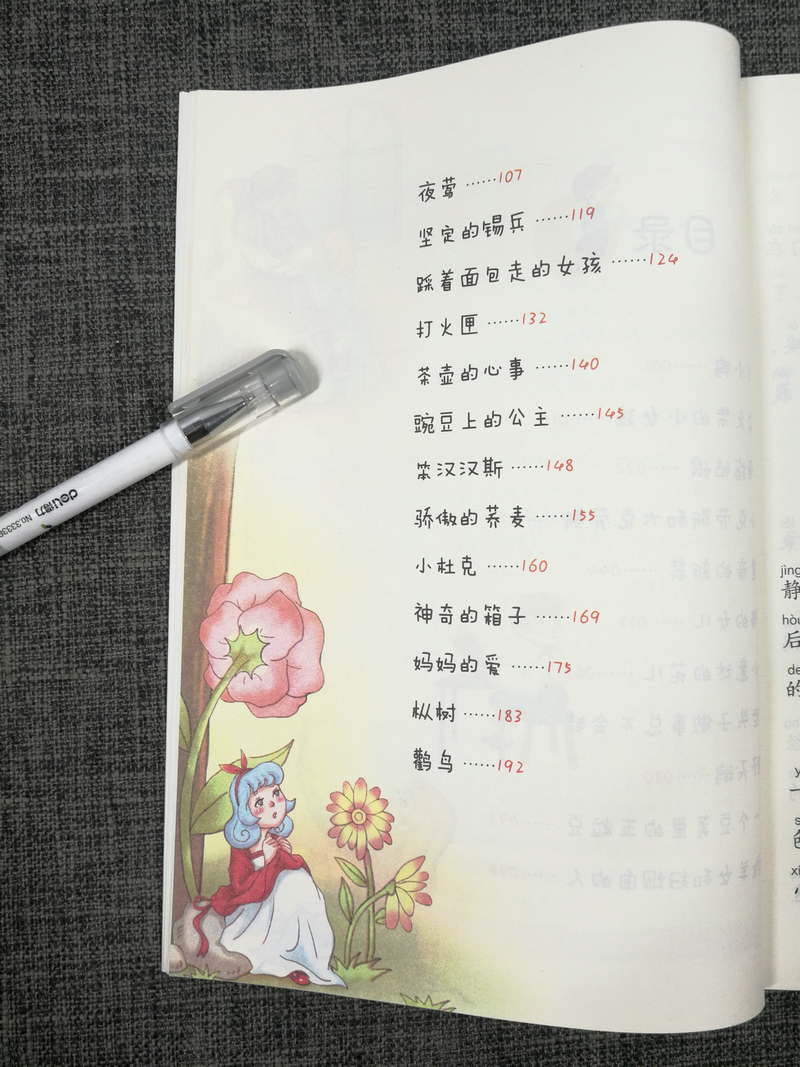 夜莺……107
坚定的锡兵……119
踩着面包走的女孩……124
打火匣……132
茶壶的心事……140
豌豆上的公主……145
笨汉汉斯……148
骄傲的荞麦……155
小杜克……160
神奇的箱子……169
妈妈的爱……175
枞树……183
鹳鸟……192
deli得力 No.3333
jìng
静
hòu
后
de
的